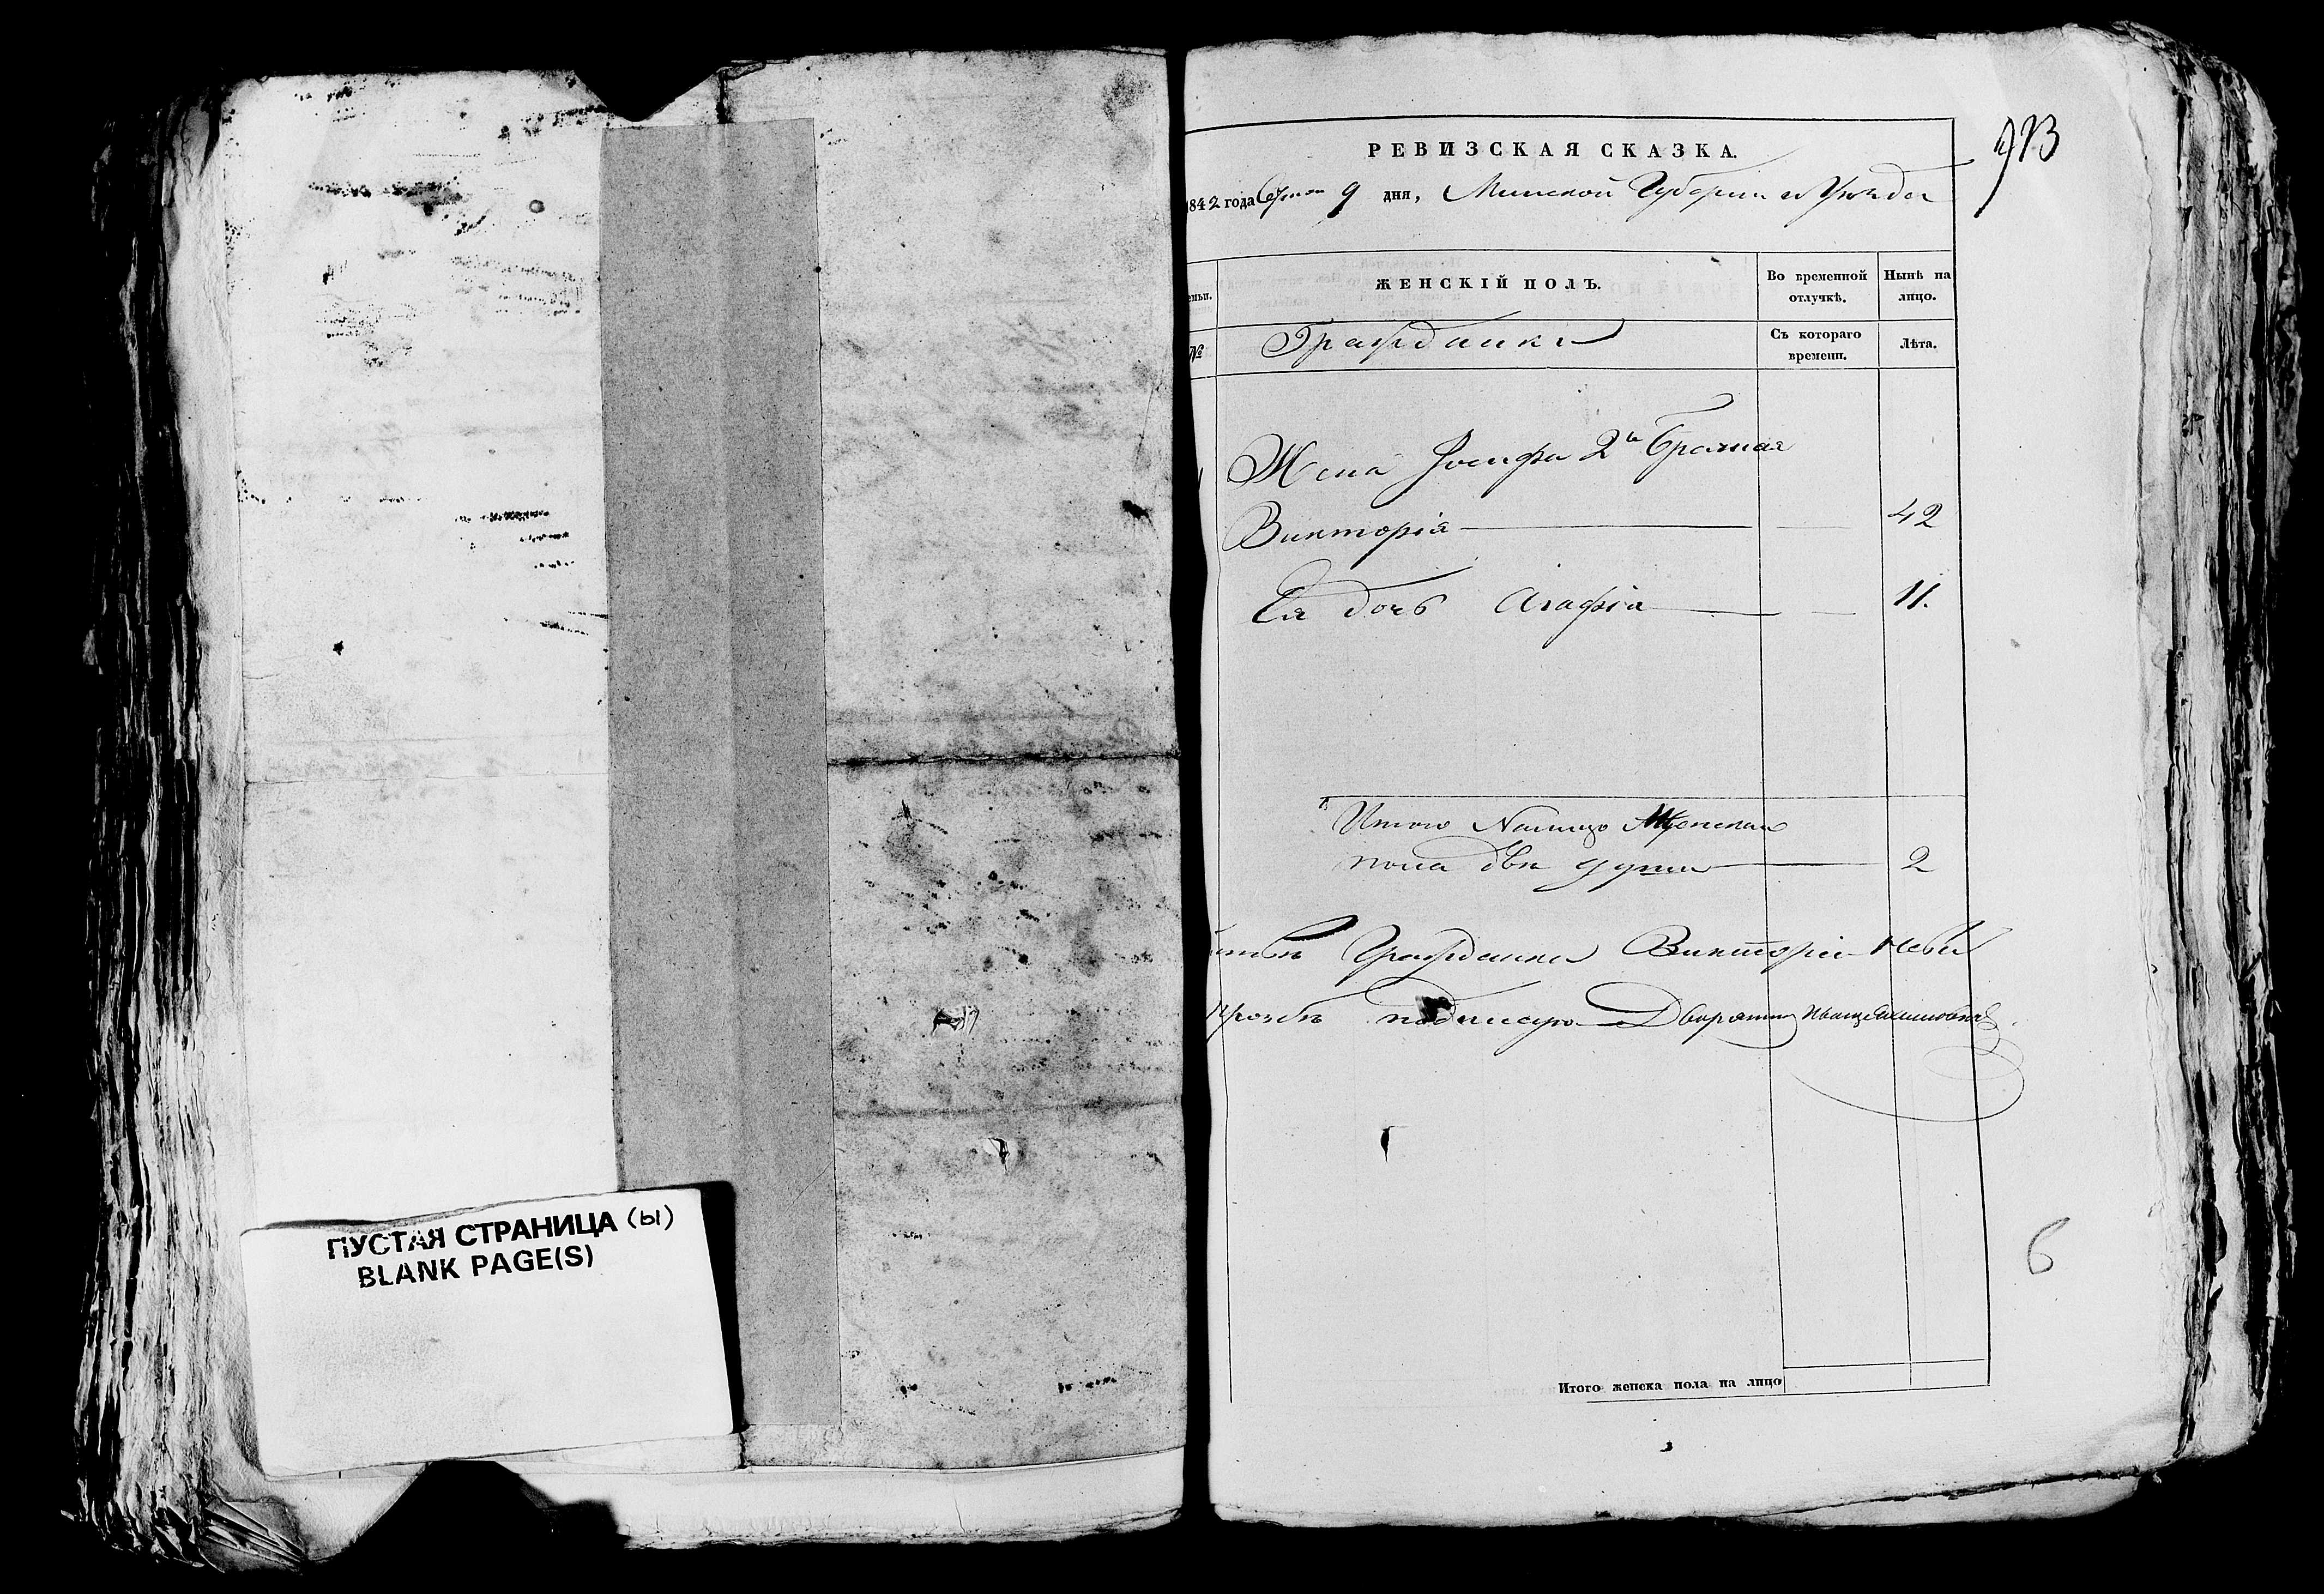 ПУСТАЯ СТРАНИЦА (Ы)
BLANK PAGE(S)
913
РЕВИЗСКАЯ СКАЗКА.
1842 года 9 дня, Минской Губерніи и Уѣзда
ЖЕНСКІЙ ПОЛЪ.
Во временной отлучкѣ.
Нынѣ на лицо.
№
Гражданки
Съ котораго времени.
Лѣта.
Жена Іосифа 2й Брачная
Викторія 42
Ея дочь Агафія 11.
Итого Налицо Женскаго
пола двѣ души 2
Гражданки Викторіи
прозьбѣ подписую Дворянинъ
6
Итого женска пола на лицо